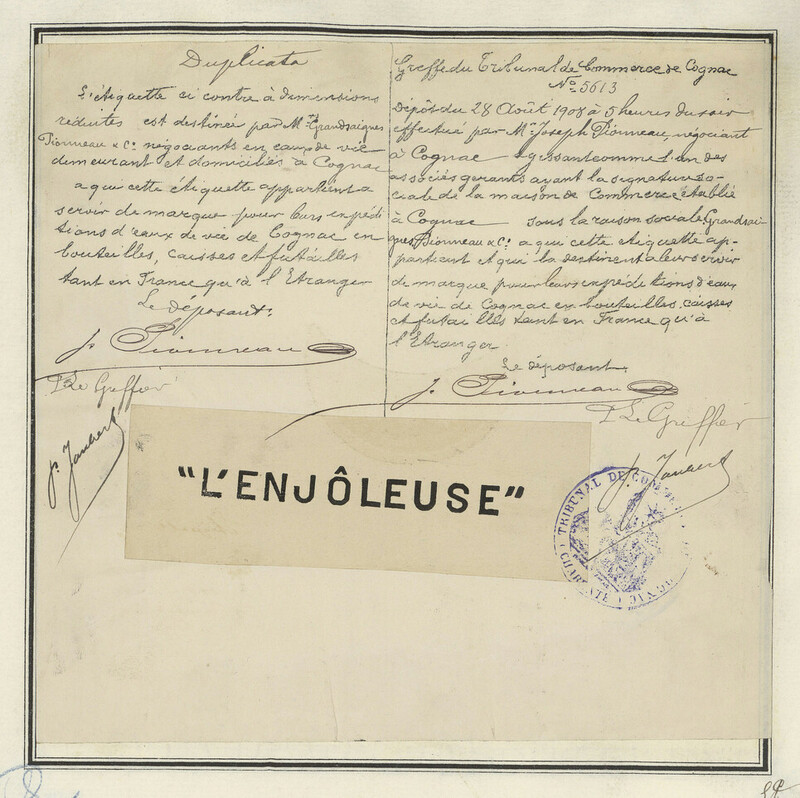 Duplicata
L'étiquette ci contre à dimensions
réduites est destinée par Mrs Grandsaignes
Pionneau & Cie négociants en eaux de vie
demeurant et domiciliés à Cognac
a qui cette étiquette appartient a
servir de marque pour leurs expédi
tions d'eaux de vie de Cognac en
bouteilles, caisses et futailles
tant en France qu'à l'Etranger
Le déposant:
J. Pionneau
P. Le Greffier
P. Jaubert
Greffe du Tribunal de Commerce de Cognac
No 5613
Dépôt du 28 Août 1908 à 5 heures du soir
effectué par Mr Joseph Pionneau, négociant
à Cognac agissant comme l'un des
associés gerants ayant la signature so-
ciale de la maison de Commerce établie
à Cognac sous la raison sociale Grandsai-
gnes Pionneau & Cie a qui cette etiquette ap-
partient et qui la destinent a leur servir
de marque pour leurs expéditions d'eaux
de vie de Cognac en bouteilles, caisses
et futailles tant en France qu'à
l'Etranger
Le déposant
J. Pionneau
P. Le Greffier
P. Jaubert
"L'ENJÔLEUSE"
TRIBUNAL DE COMMERCE
CHARENTE